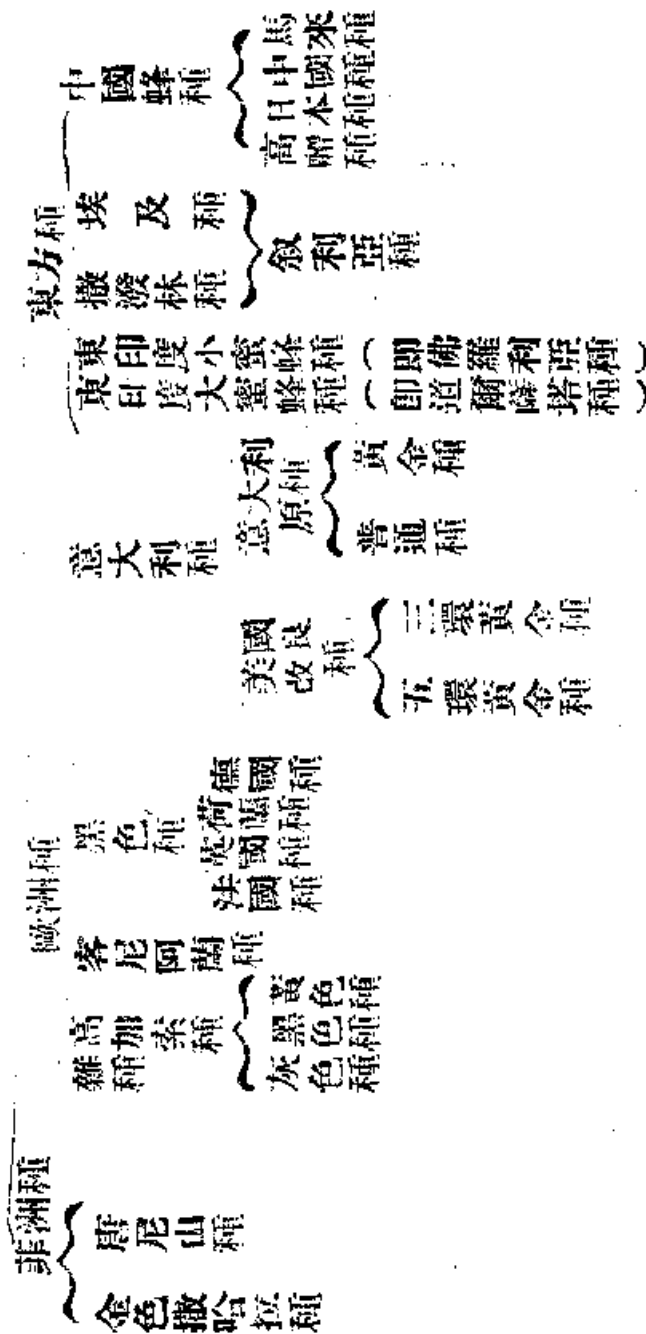 東方種
中國蜂種
馬來種
中國種
日本種
高贈種
埃及種
撒潑林種
叙利亞種
東印度小蜜蜂種(即佛羅利亞種)
東印度大蜜蜂種(即道爾薩塔種)
歐洲種
意大利種
意大利原種
黃金種
普通種
美國改良種
三環黃金種
五環黃金種
黑色種
德國種
荷蘭種
英國種
法國種
客尼阿蘭種
高加索種
黃色種
黑色種
灰色種
雜種
菲洲種
唐尼山種
金色撒哈拉種